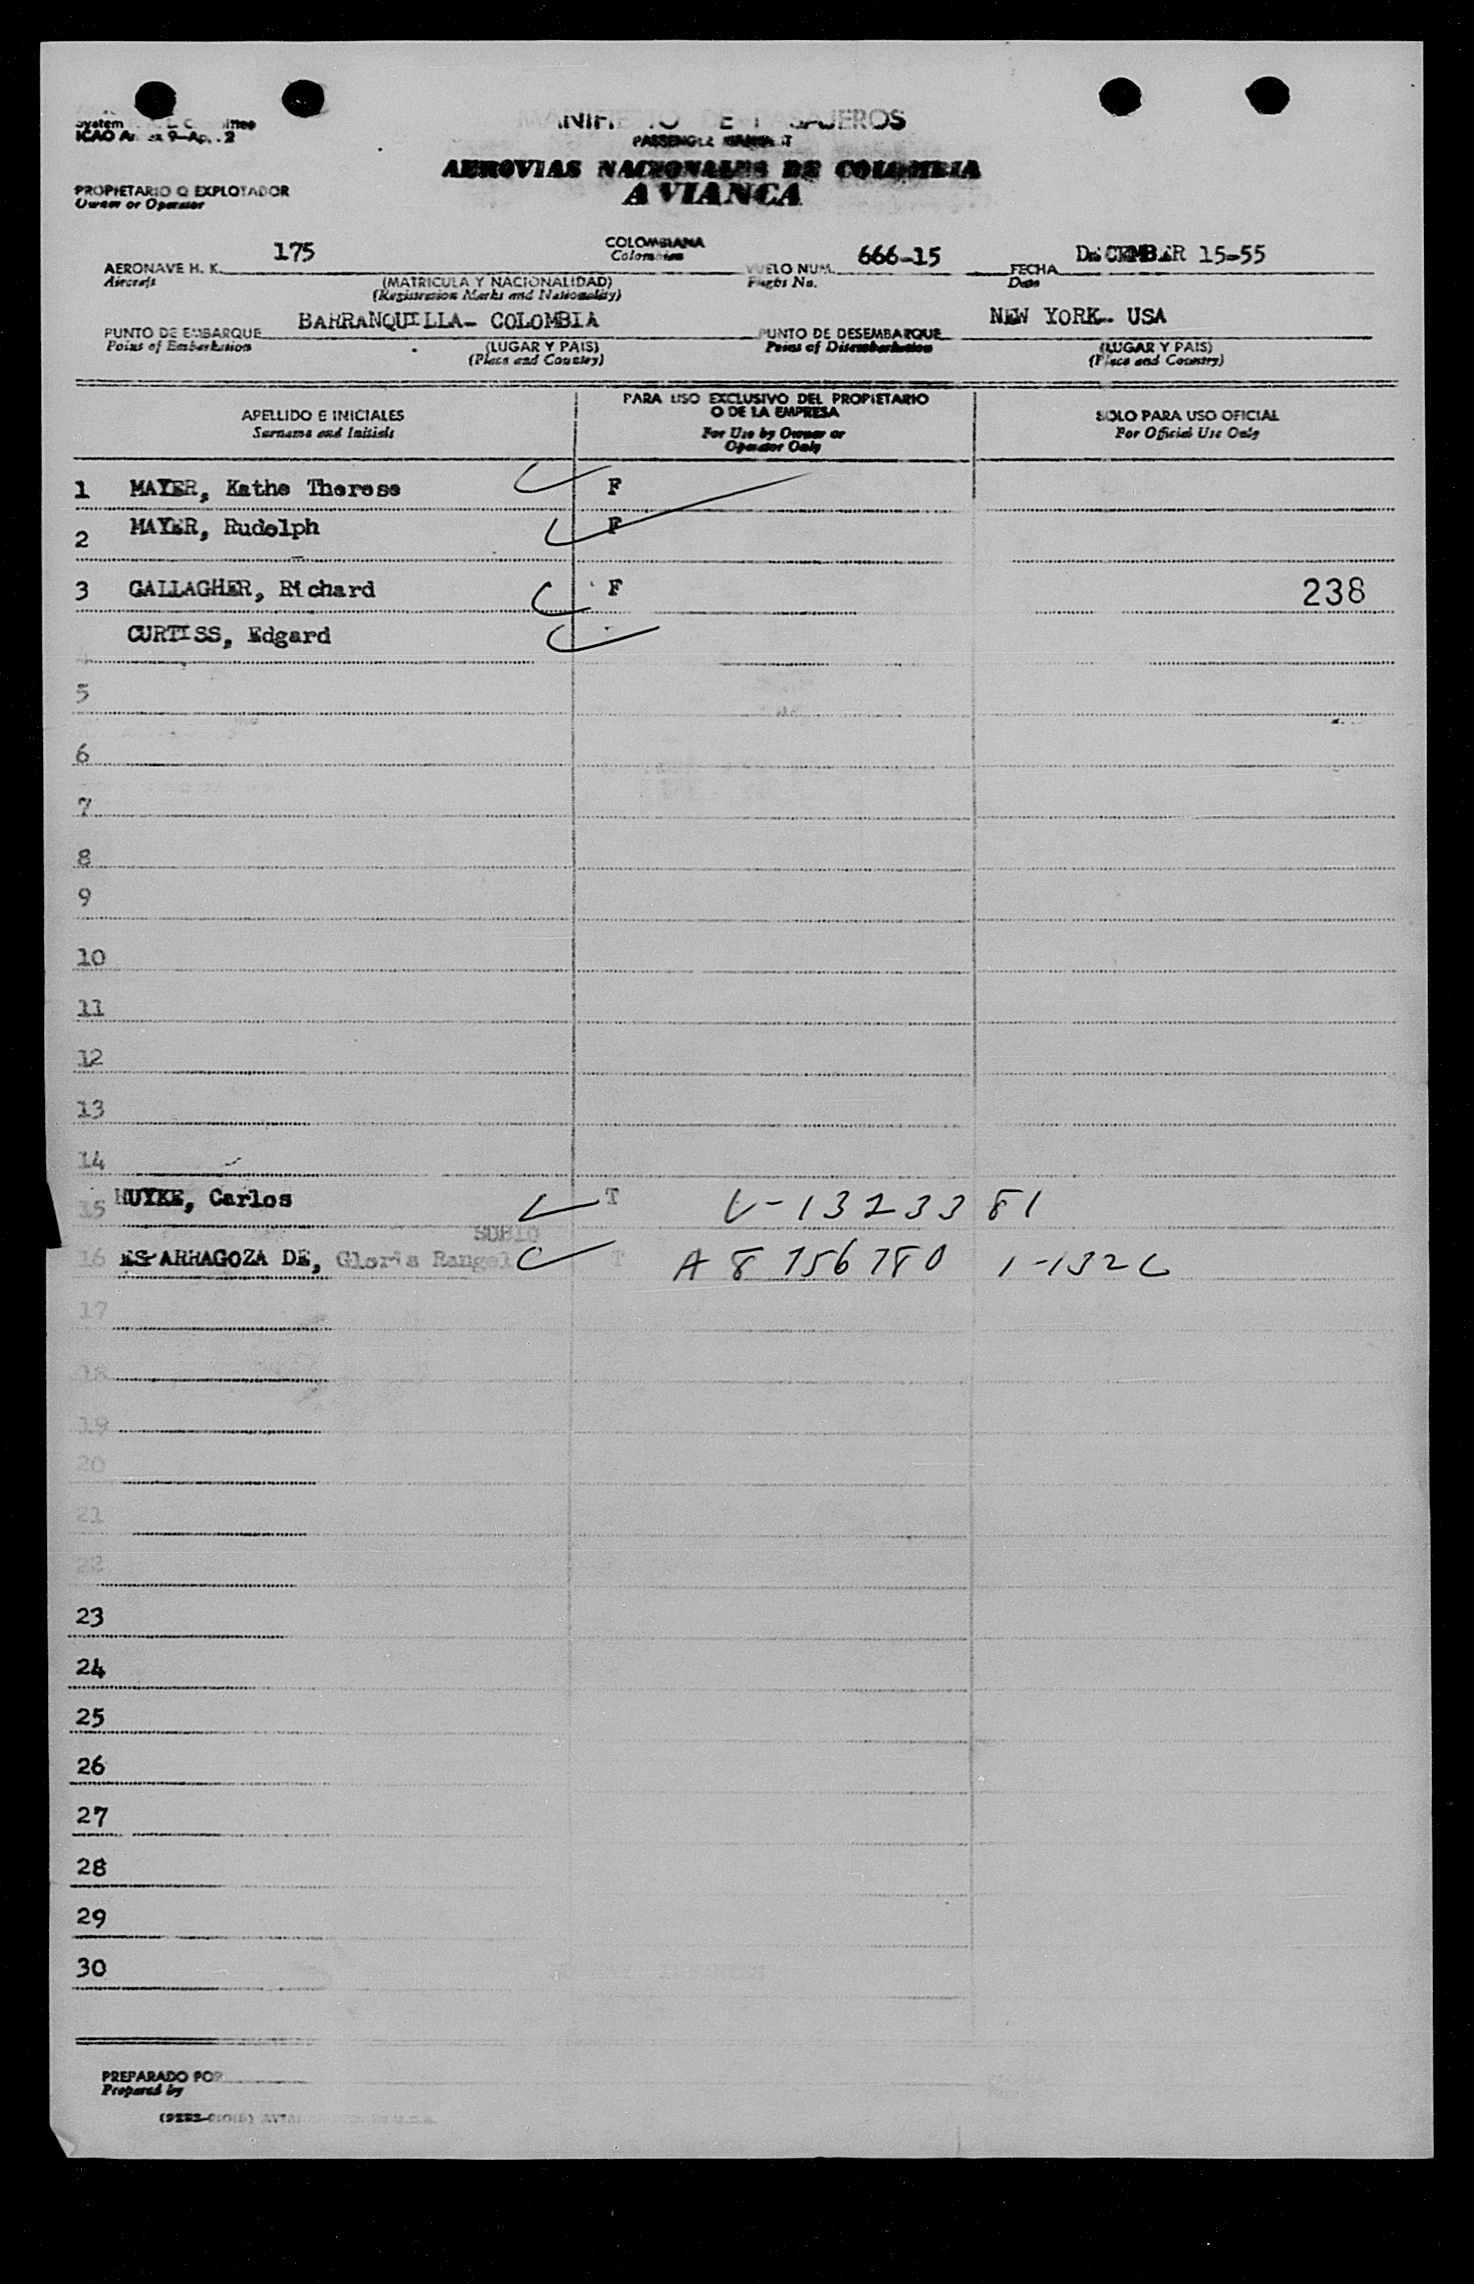 System
ICAO
PASSENGER MANIFEST
AEROVIAS NACIONALES DE COLOMBIA
AVIANCA
PROPIETARIO O EXPLOTADOR
Owner or Operator
AERONAVE H. K. 175 COLOMBIANA VUELO NUM. 666-15 FECHA DECEMBER 15-55
Aircraft Colombian Flight No. Date
(MATRICULA Y NACIONALIDAD)
(Registration Marks and Nationality)
PUNTO DE EMBARQUE BARRANQUILLA- COLOMBIA PUNTO DE DESEMBARQUE NEW YORK- USA
Point of Embarkation (LUGAR Y PAIS) Point of Disembarkation (LUGAR Y PAIS)
(Place and Country) (Place and Country)
APELLIDO E INICIALES PARA USO EXCLUSIVO DEL PROPIETARIO O DE LA EMPRESA SOLO PARA USO OFICIAL
Surname and Initials For Use by Owner or Operator Only For Official Use Only
1 MAYER, Kathe Therese F
2 MAYER, Rudolph F
3 GALLAGHER, Richard F 238
4 CURTISS, Edgard
5
6
7
8
9
10
11
12
13
14
15 HUYKE, Carlos T V-1323381
SUBIO
16 ESPARRAGOZA DE, Gloria Rangel T A8 756780 1-132
17
18
19
20
21
22
23
24
25
26
27
28
29
30
PREPARADO POR
Prepared by